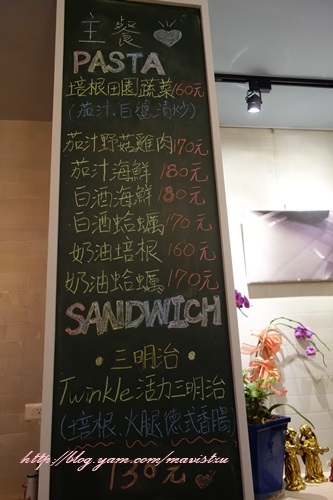 主餐
PASTA
培根田園蔬菜160元
(茄汁.白醬.清炒)
茄汁野菇雞肉170元
茄汁海鮮 180元
白酒海鮮 180元
白酒蛤蠣 170元
奶油培根 160元
奶油蛤蠣 170元
SANDWICH
三明治
Twinkle活力三明治
(培根.火腿.德式香腸)
130元
http://blog.yam.com/mavistzu